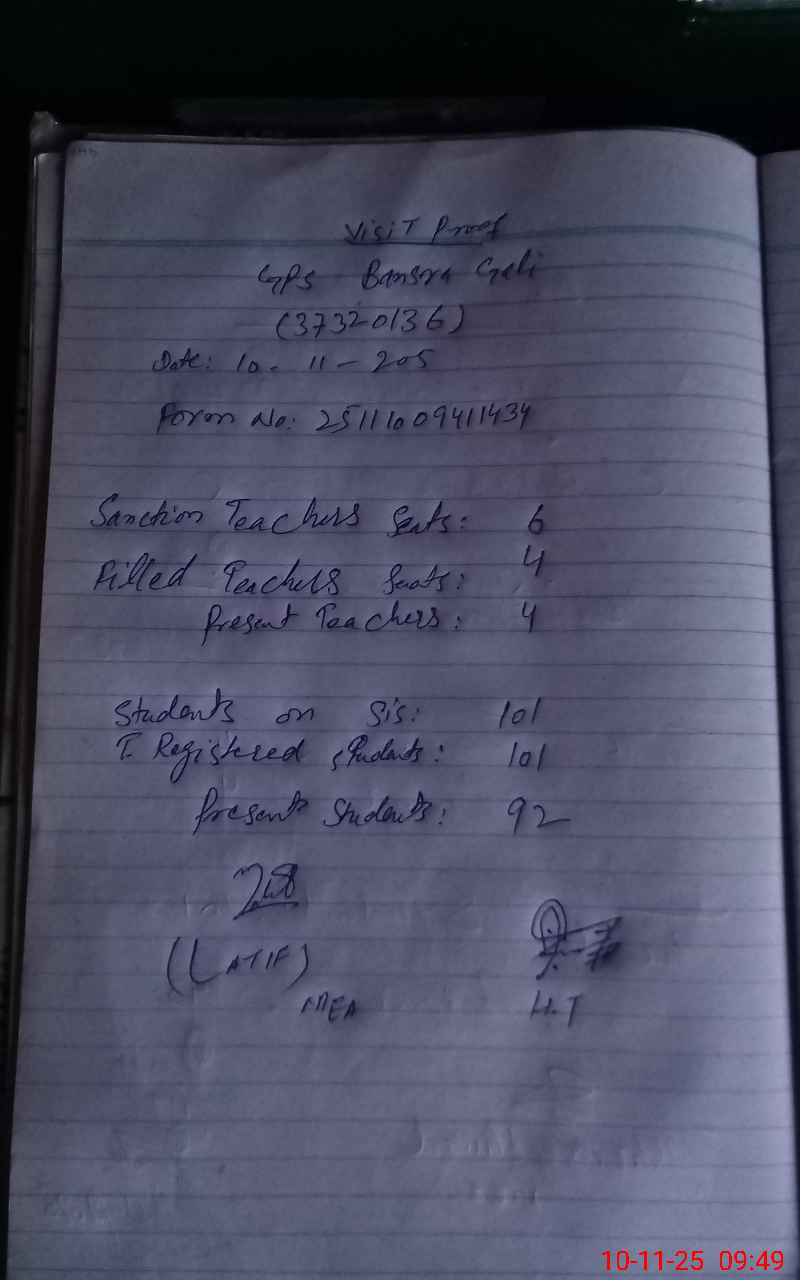 Visit Proof
GPS Bansra Gali
(37320136)
Date: 10-11-205
Form No: 25111009411434
Sanction Teachers Seats: 6
Filled Teachers Seats: 4
Present Teachers: 4
Students on Sis: 101
T. Registered Students: 101
Present Students: 92
(LATIF)
MEA
H.T
10-11-25 09:49